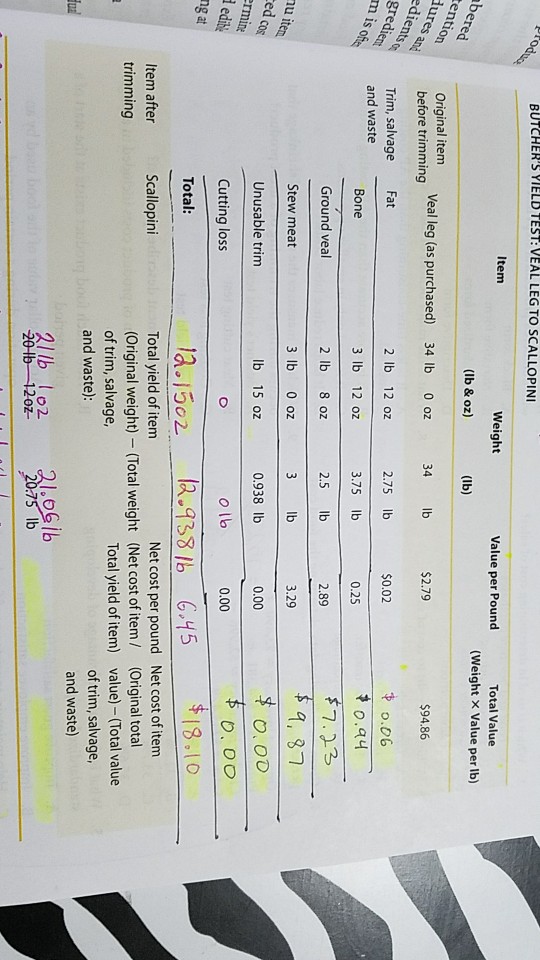 BUTCHER'S YIELD TEST: VEAL LEG TO SCALLOPINI
Item Weight Value per Pound Total Value
(lb & oz) (lb) (Weight X Value per lb)
Original item before trimming Veal leg (as purchased) 34 lb 0 oz 34 lb $2.79 $94.86
Trim, salvage and waste Fat 2 lb 12 oz 2.75 lb $0.02 $ 0.06
Bone 3 lb 12 oz 3.75 lb 0.25 $0.94
Ground veal 2 lb 8 oz 2.5 lb 2.89 $7.23
Stew meat 3 lb 0 oz 3 lb 3.29 $9.87
Unusable trim lb 15 oz 0.938 lb 0.00 $0.00
Cutting loss 0 0 lb 0.00 $0.00
Total: 12.15oz 12.938lb 6.45 $18.10
Item after trimming Scallopini Total yield of item (Original weight) – (Total weight of trim, salvage, and waste): Net cost per pound (Net cost of item / Total yield of item) Net cost of item (Original total value) – (Total value of trim, salvage, and waste)
21lb 1oz 21.06lb
20 lb 12 oz 20.75 lb